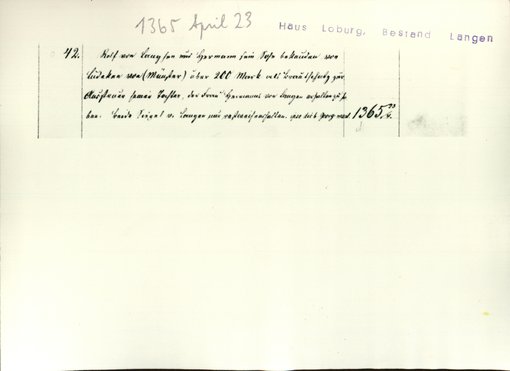 1365 April 23
Haus Loburg, Bestand Langen
42. Rolf von Langen und Hermann sein Sohn bekunden von
Lüdeken von (Münster) über 200 Mark als Brautschatz zur
Aussteuer seiner Tochter, der Frau Hermanns von Langen erhalten zu ha-
ben. beide Siegel v. Langen gut erhalten. 1365 23/4.